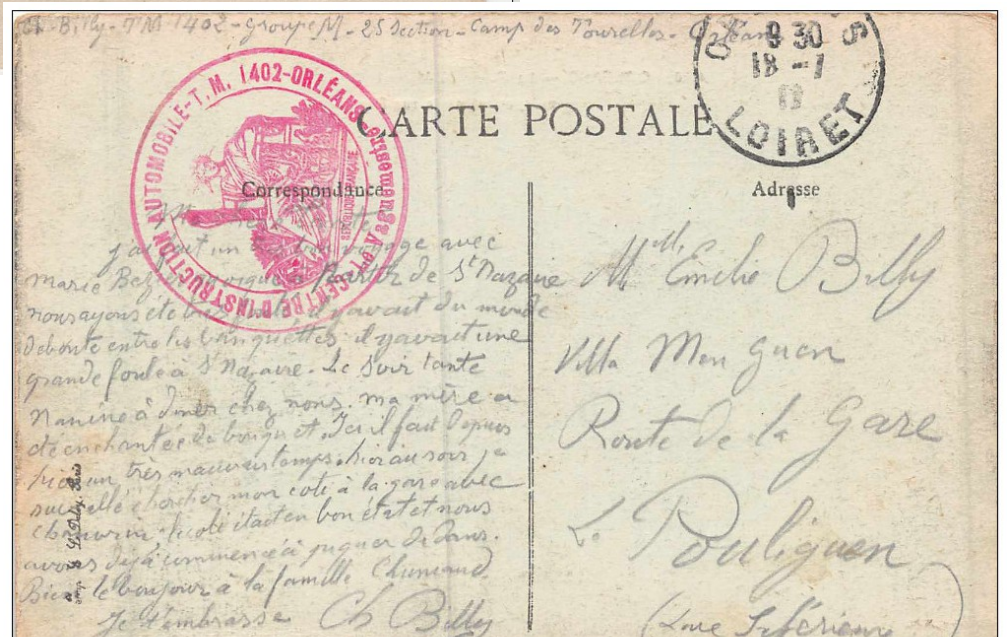 Ch Billy - TM 1402 - Groupe M - 25 Section - Camp des Tourelles - Orléans
CENTRE D'INSTRUCTION AUTOMOBILE - T. M. 1402 - ORLÉANS
9 30
18 - 1
LOIRET
CARTE POSTALE
Correspondance
Adresse
j'ai fait un bon voyage avec
Marie de St Nazaire
nous ayons été il y avait du monde
debout entre les banquettes il y avait une
grande foule à St Nazaire. Le soir tante
Nanine à diner chez nous. ma mère a
été enchantée du bouquet. Ici il fait depuis
hier un très mauvais temps. hier au soir je
suis allé chercher mon coli à la gare avec
le coli était en bon état et nous
avons déjà commencé à
Bien le bonjour à la famille
Je t'embrasse Ch Billy
Mlle Emilie Billy
Villa Mon
Route de la Gare
Le Pouliguen
(Loire Inférieure)
Paris